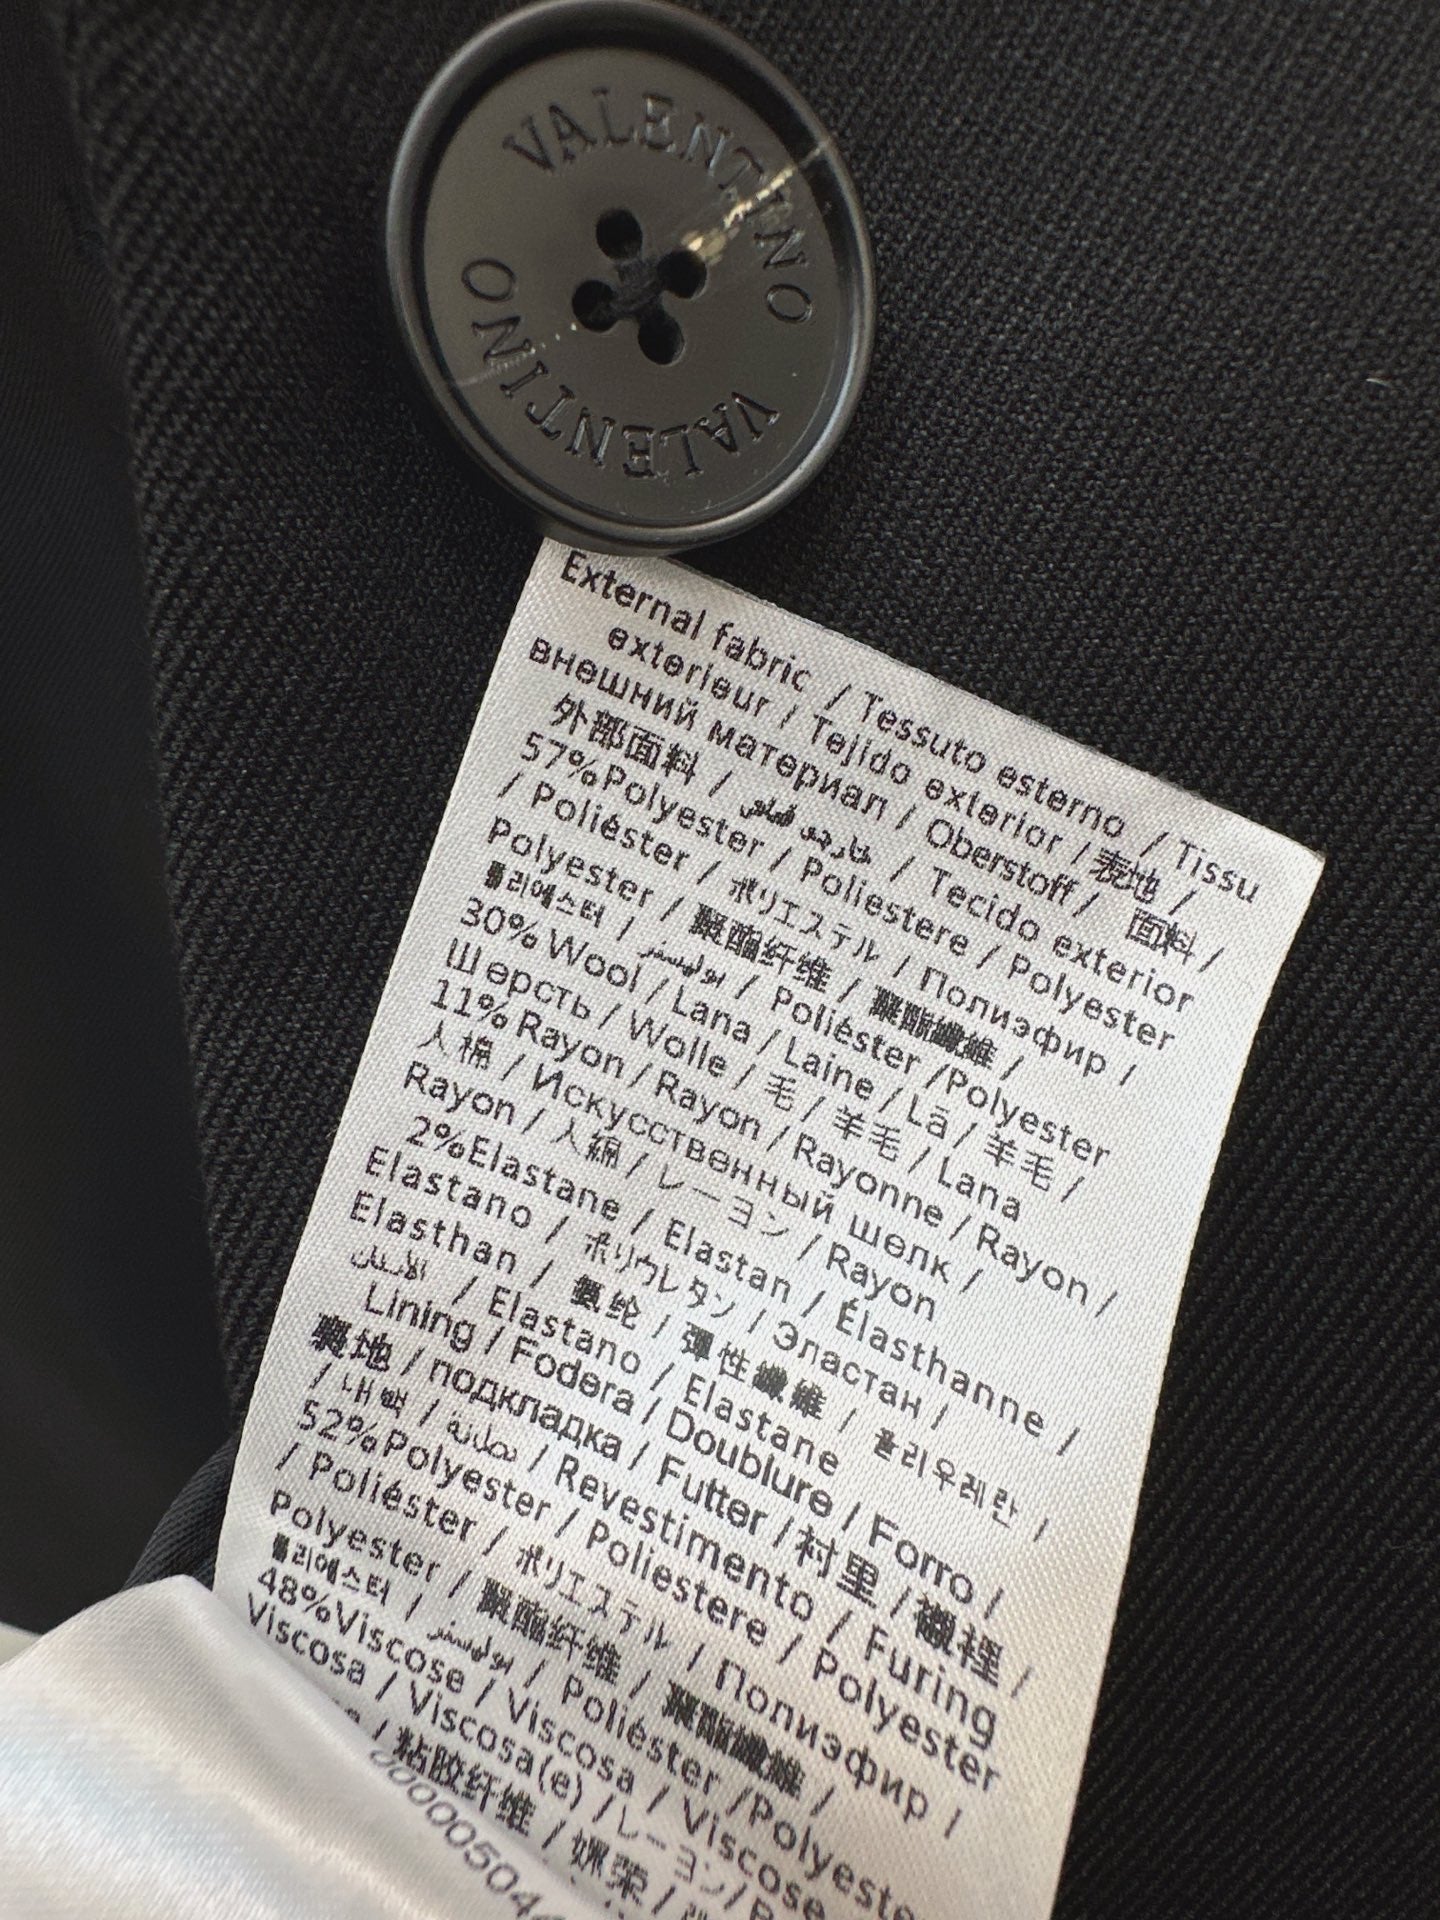 VALENTINO
VALENTINO
External fabric / Tessuto esterno / Tissu
exterieur / Tejido exterior / 表地 /
внешний материал / Oberstoff / 面料 /
外部面料 / / Tecido exterior
57%Polyester / Poliestere / Polyester
/ Poliéster / ポリエステル / Полиэфир /
Polyester / 聚酯纤维 / 聚酯纖維 /
폴리에스터 / بوليستر / Poliéster /Polyester
30%Wool / Lana / Laine / Lã / 羊毛 /
Шерсть / Wolle / 毛 / 羊毛 / Lana
11%Rayon / Rayon / Rayonne / Rayon /
人棉 / Искусственный шелк /
Rayon / 人綿 / レーヨン / Rayon
2%Elastane / Elastan / Élasthanne /
Elastano / ポリウレタン / Эластан /
Elasthan / 氨纶 / 彈性纖維 / 폴리우레탄 /
/ Elastano / Elastane
Lining / Fodera / Doublure / Forro /
裏地 / подкладка / Futter / 衬里 / 襯裡 /
/ 내벽 / بطانة / Revestimento / Furing
52%Polyester / Poliestere / Polyester
/ Poliéster / ポリエステル / Полиэфир /
Polyester / 聚酯纤维 / 聚酯纖維 /
폴리에스터 / بوليستر / Poliéster /Polyeste
48%Viscose / Viscosa / Viscose
Viscosa / Viscosa(e) /レーヨン/
/ 粘胶纤维 / 嫘縈 /
00000504